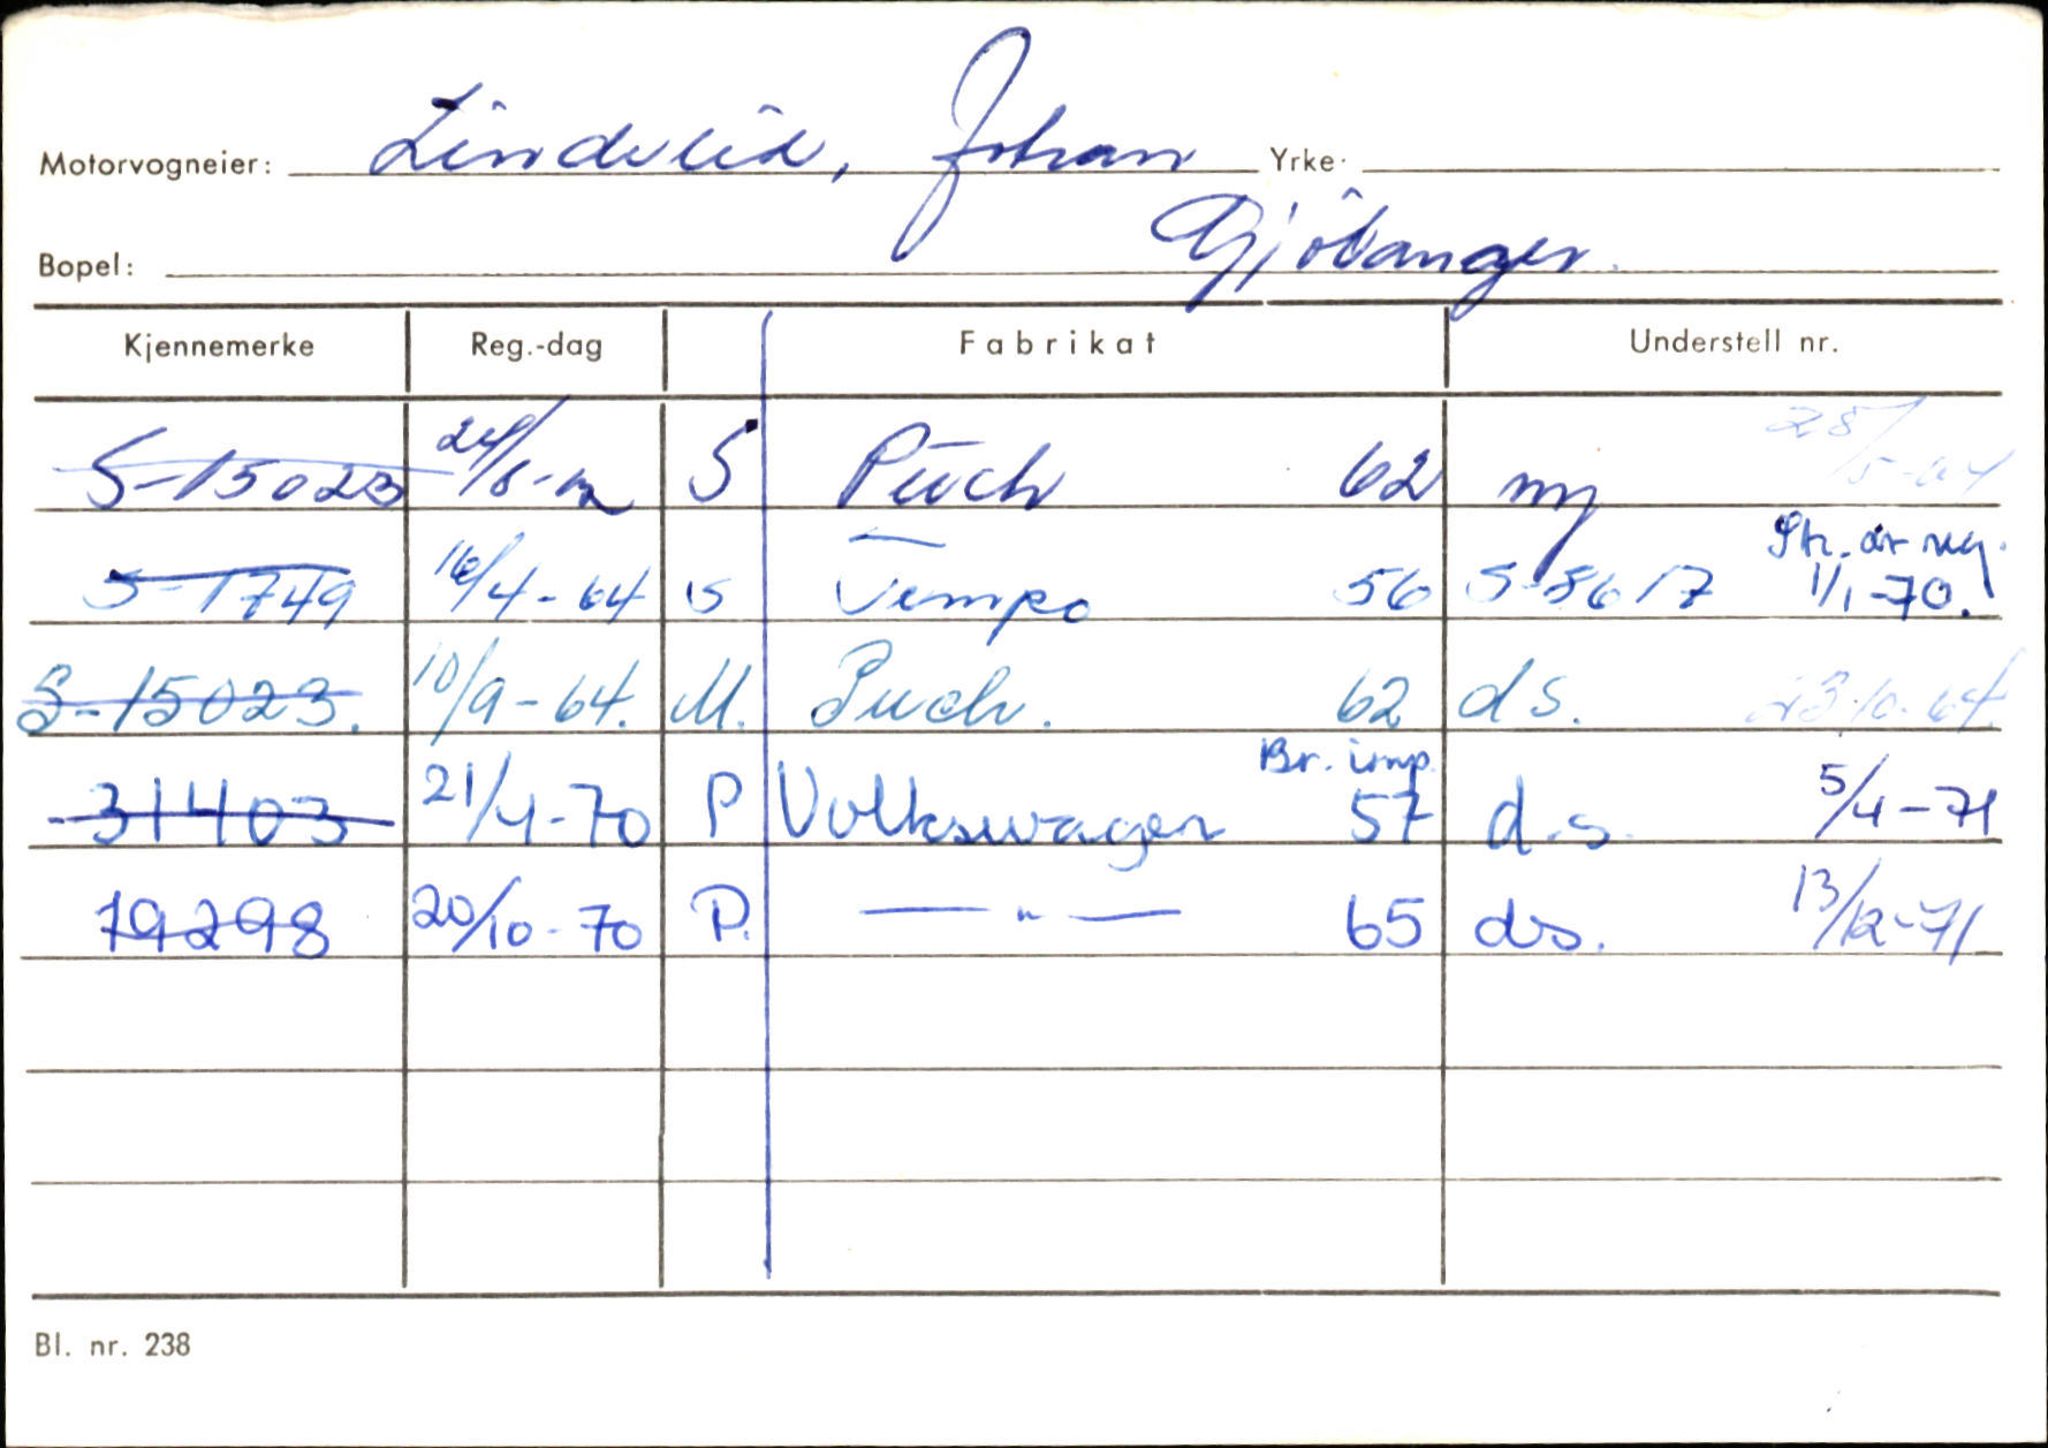 Motorvogneier: Lindelid, Johan Yrke:
Bopel: Gjövanger.
Kjennemerke Reg.-dag Fabrikat Understell nr.
S-15023 S Puch 62 ny
S-1749 16/4-64 S Tempo 56 S-5617 Str. av reg. 1/1-70.
S-15023. 10/9-64. M. Puch. 62 ds. 23.10.64.
Br. imp.
31403 21/4-70 P Volkswagen 57 d.s. 5/4-71
19298 20/10-70 P. — " — 65 ds. 13/12-71
Bl. nr. 238